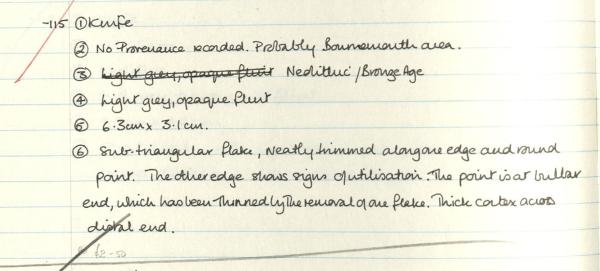 -115 ① Knife
② No Provenance recorded. Probably Bournemouth area.
③ Light grey, opaque flint Neolithic / Bronze Age
④ Light grey, opaque flint
⑤ 6.3cm x 3.1cm.
⑥ Sub-triangular flake, neatly trimmed along one edge and round
point. The other edge shows signs of utilisation. The point is at bulbar
end, which has been thinned by the removal of one flake. Thick cortex across
distal end.
£2-50